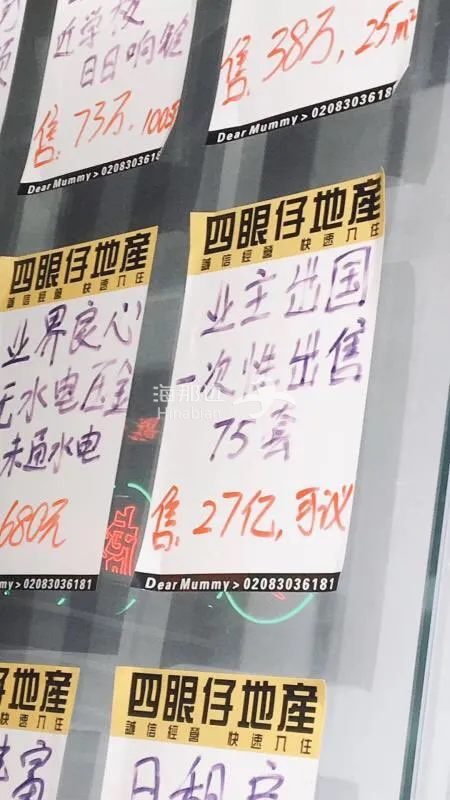 近学校
日日响铃
售:73万,100㎡
Dear Mummy > 0208303618
售:38万,25m²
Dear Mummy > 02083036181
四眼仔地産
誠信經營 快速入住
业界良心
无水电压金
未通水电
680元
mmy > 02083036181
四眼仔地産
誠信經營 快速入住
业主出国
一次性出售
75套
售:27亿,可议
Dear Mummy > 02083036181
海那边
Hinabian
仔地産
快速入住
四眼仔地産
誠信經營 快速入住
日租房